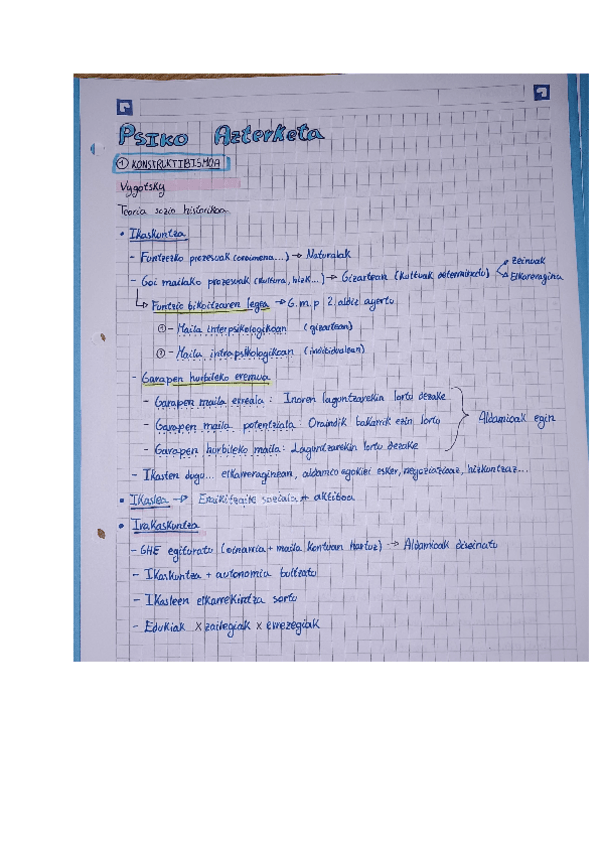 PSIKO AZTERKETA
① KONSTRUKTIBISMOA
Vygotsky
Teoria sozio historikoa
• Ikaskuntza
- Funtzezko prozesuak (oroimena...) → Naturalak
- Goi mailako prozesuak (kultura, hizk...) → Gizartean (kulturak determinatu) zeinuak
Elkareragina
↳ Funtzio bikoitzaren legea → G.m.p 2 aldiz agertu
① - Maila interpsikologikoan (gizartean)
- Maila intrapsikologikoan (indibidualean)
- Garapen hurbileko eremua
- Garapen maila erreala: Inoren laguntzarekin lortu dezake
- Garapen maila potentziala: Oraindik bakarrik ezin lortu
Aldamioak egin
- Garapen hurbileko maila: Laguntzarekin lortu dezake
- Ikasten dugu... elkarreraginean, aldamio egokiei esker, negoziazioaz, hizkuntzaz...
• Ikaslea → Eraikitzaile soziala + aktiboa
• Irakaskuntza
- GHE egituratu (oinarria + maila kontuan hartuz) → Aldamioak diseinatu
- Ikaskuntza + autonomia bultzatu
- Ikasleen elkarrekintza sortu
- Edukiak x zailegiak x errezegiak